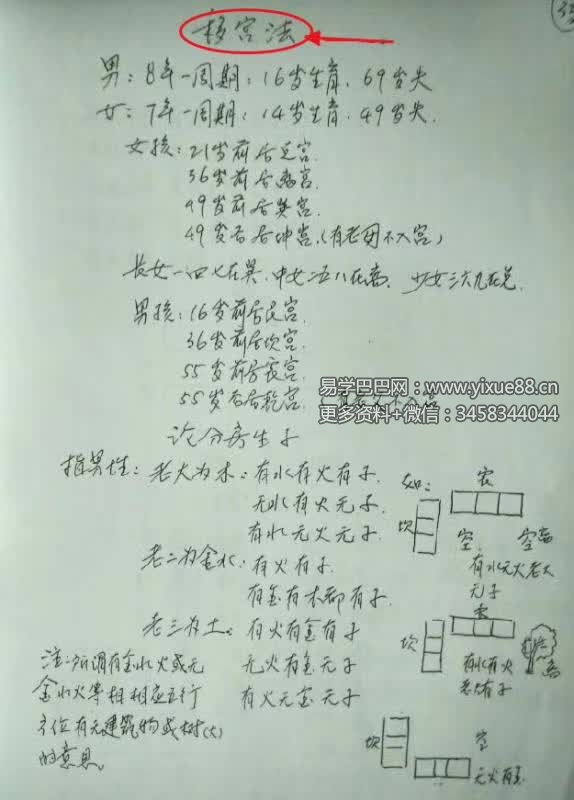 移宫法
男：8年一周期：16岁生育、69岁失
女：7年一周期：14岁生育、49岁失.
女孩：21岁前居兑宫.
36岁前居离宫.
49岁前居巽宫.
49岁后居坤宫.(有老母不入宫)
长女一四七在巽、中女二五八在离、少女三六九在兑.
男孩：16岁前居艮宫.
36岁前居坎宫.
55岁前居震宫.
55岁后居乾宫.
易学巴巴网：www.yixue88.cn
更多资料+微信：3458344044
论分房生子
指男性：老大为木：有水有火有子.
无水有火无子.
有水无火无子.
老二为金水：有火有子.
有金有木都有子.
老三为土：有火有金有子
无火有金无子
有火无金无子
注：所谓有金水火或无
金水火等相相应五行
方位有无建筑物或树(大)
的意思。
如：
坎
空
空离
有水无火老大
无子
坎
有水有火
老大有子
离
坎
空
无火有金